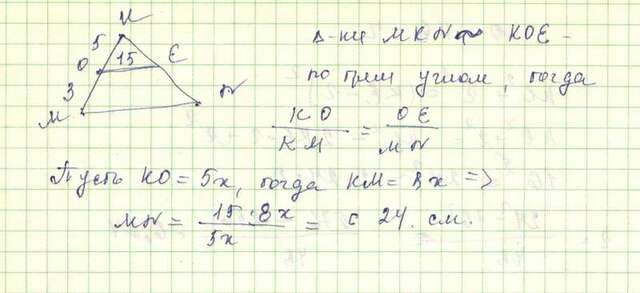 K
5
15
O
E
3
M
N
Δ-ки MKN ~ KOE -
по трем углам, тогда
KO / KM = OE / MN
Пусть KO = 5x, тогда KM = 8x =>
MN = 15·8x / 5x = = 24. см.